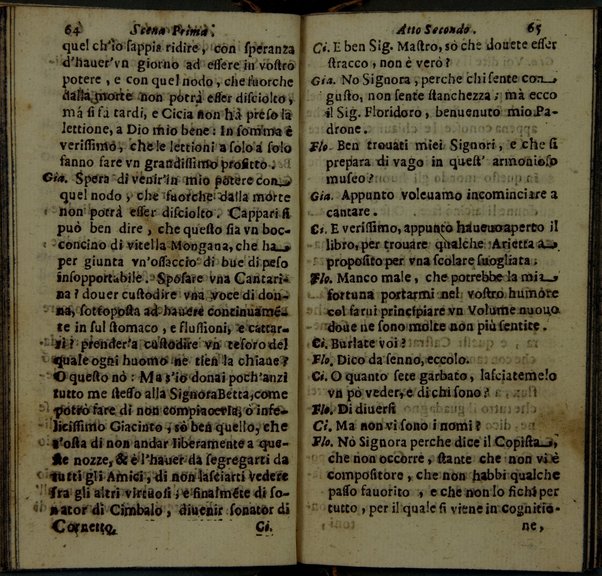 64 Scena Prima.
quel ch'io sappia ridire, con speranza
d'hauer'vn giorno ad essere in vostro
potere, e con quel nodo, che fuorche
dalla morte non potrà esser disciolto,
má si fà tardi, e Cicia non hà preso la
lettione, a Dio mio bene: In somma è
verissimo, che le lettioni a solo a solo
fanno fare vn grandissimo profitto.
Gia. Spera di venir'in mio potere con
quel nodo, che fuorche dalla morte
non potrà esser disciolto. Cappari si
può ben dire, che questo sia vn boc-
concino di vitella Mongana, che ha
per giunta vn'ossaccio di bue di peso
insopportabile. Sposare vna Cantari-
na? douer custodire vna voce di don-
na, sottoposta ad hauere continuamẽ-
te in sul stomaco, e flussioni, e cattar-
ri? prender'a custodire vn tesoro del
quale ogni huomo ne tien la chiaue?
O questo nò: Ma s'io donai poch'anzi
tutto me stesso alla Signora Betta, come
potrò fare di non compiacerla, ò infe-
licissimo Giacinto, sò ben quello, che
t'osta di non andar liberamente a que-
ste nozze, & è l'hauer da segregarti da
tutti gli Amici, di non lasciarti vedere
fra gli altri virtuosi; e finalmẽte di so-
nator di Cimbalo, diuenir sonator di
Cornetto. Ci.
Atto Secondo. 65
Ci. E ben Sig. Mastro, sò che douete esser
stracco, non è verò?
Gia. No Signora, perche chi sente con
gusto, non sente stanchezza; mà ecco
il Sig. Floridoro, benuenuto mio Pa-
drone.
Flo. Ben trouati miei Signori, e che si
prepara di vago in quest' armonioso
museo?
Gia. Appunto voleuamo incominciare a
cantare.
Ci. E verissimo, appunto haueuo aperto il
libro, per trouare qualche Arietta a
proposito per vna scolare suogliata.
Flo. Manco male, che potrebbe la mia
fortuna portarmi nel vostro humore
col farui principiare vn Volume nuouo
doue ne sono molte non più sentite.
Ci. Burlate voi?
Flo. Dico da senno, eccolo.
Ci. O quanto sete garbato, lasciatemelo
vn pò veder, e di chi sono?
Flo. Di diuersi
Ci. Ma non vi sono i nomi?
Flo. Nò Signora perche dice il Copista
che non occorre, stante che non vi è
compositore, che non habbi qualche
passo fauorito, e che non lo fichi per
tutto, per il quale si viene in cognitio-
ne,